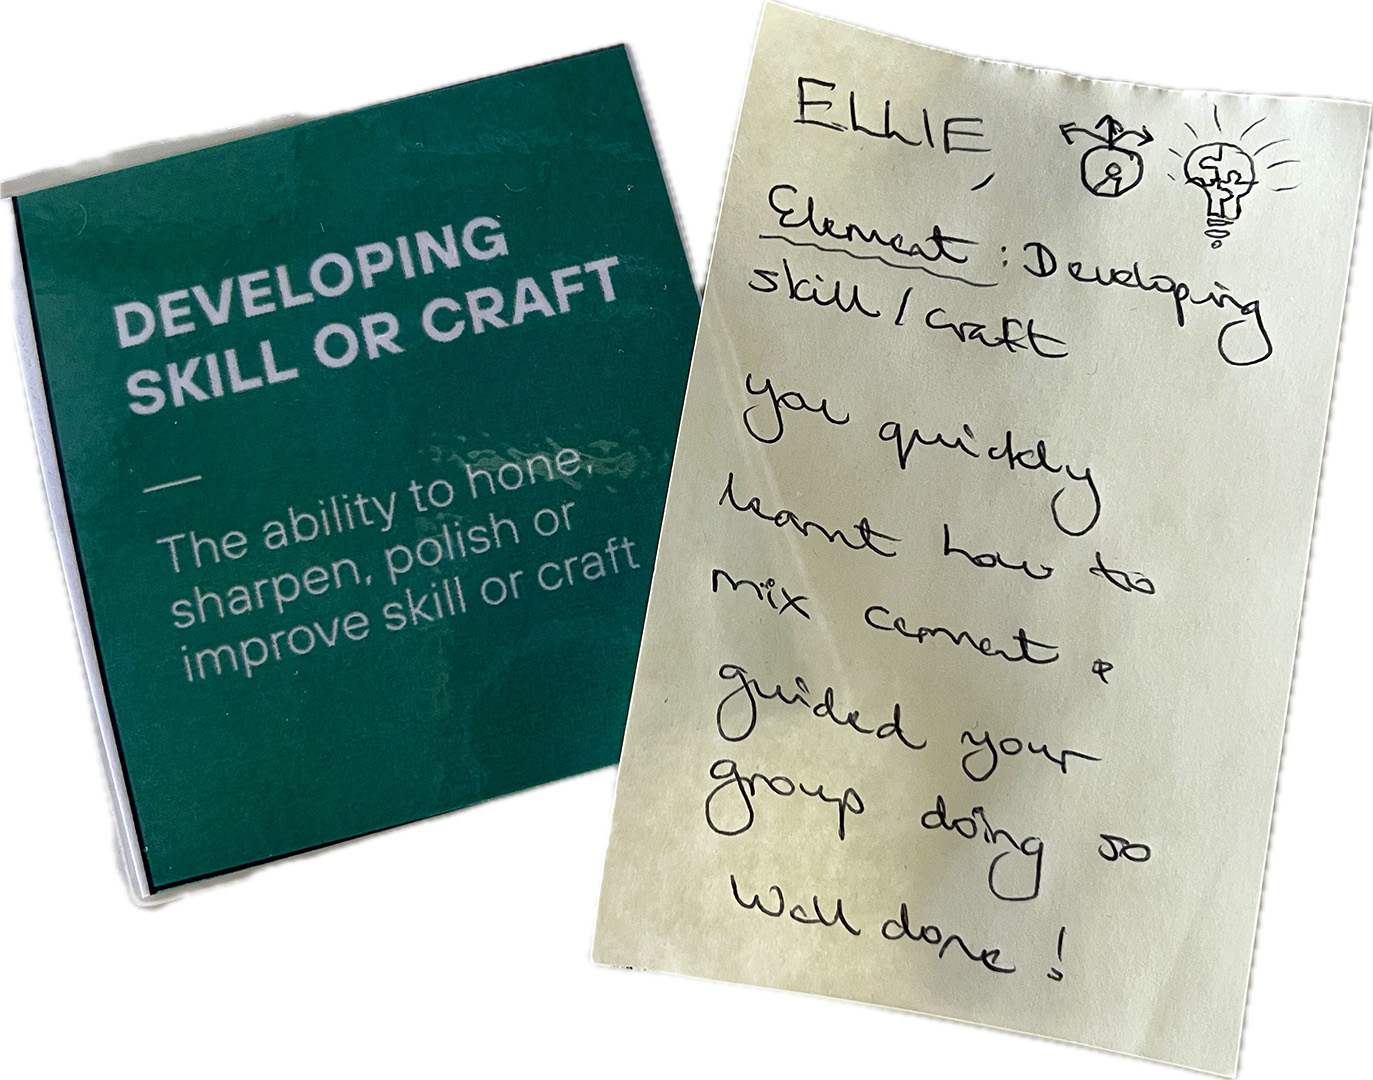 DEVELOPING
SKILL OR CRAFT
The ability to hone,
sharpen, polish or
improve skill or craft
ELLIE,
Element : Developing
skill / craft
you quickly
learnt how to
mix cement &
guided your
group doing so
Well done!